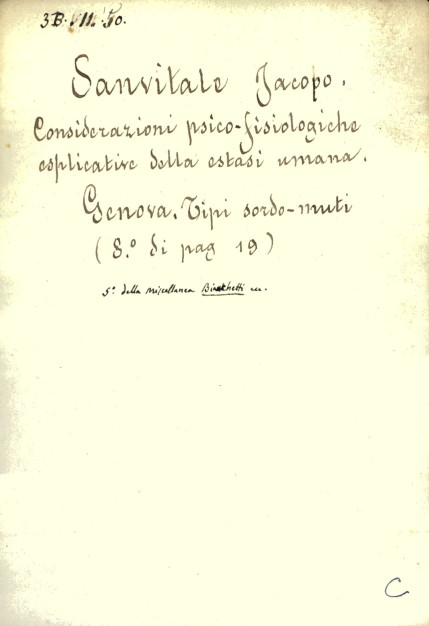 3B. VII. 50.
Sanvitale Jacopo.
Considerazioni psico-fisiologiche
esplicative della estasi umana.
Genova. Tipi sordo-muti
(8.º di pag 19)
5º della miscellanea
C